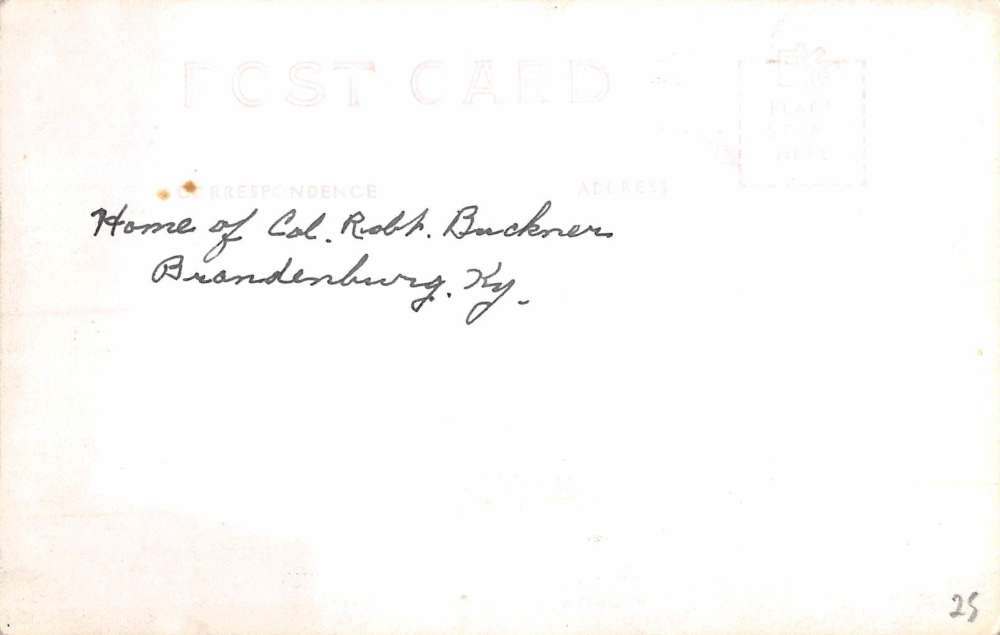 POST CARD
PLACE
HERE
CORRESPONDENCE ADDRESS
Home of Col. Robt. Buckner
Brandenburg, Ky.
25